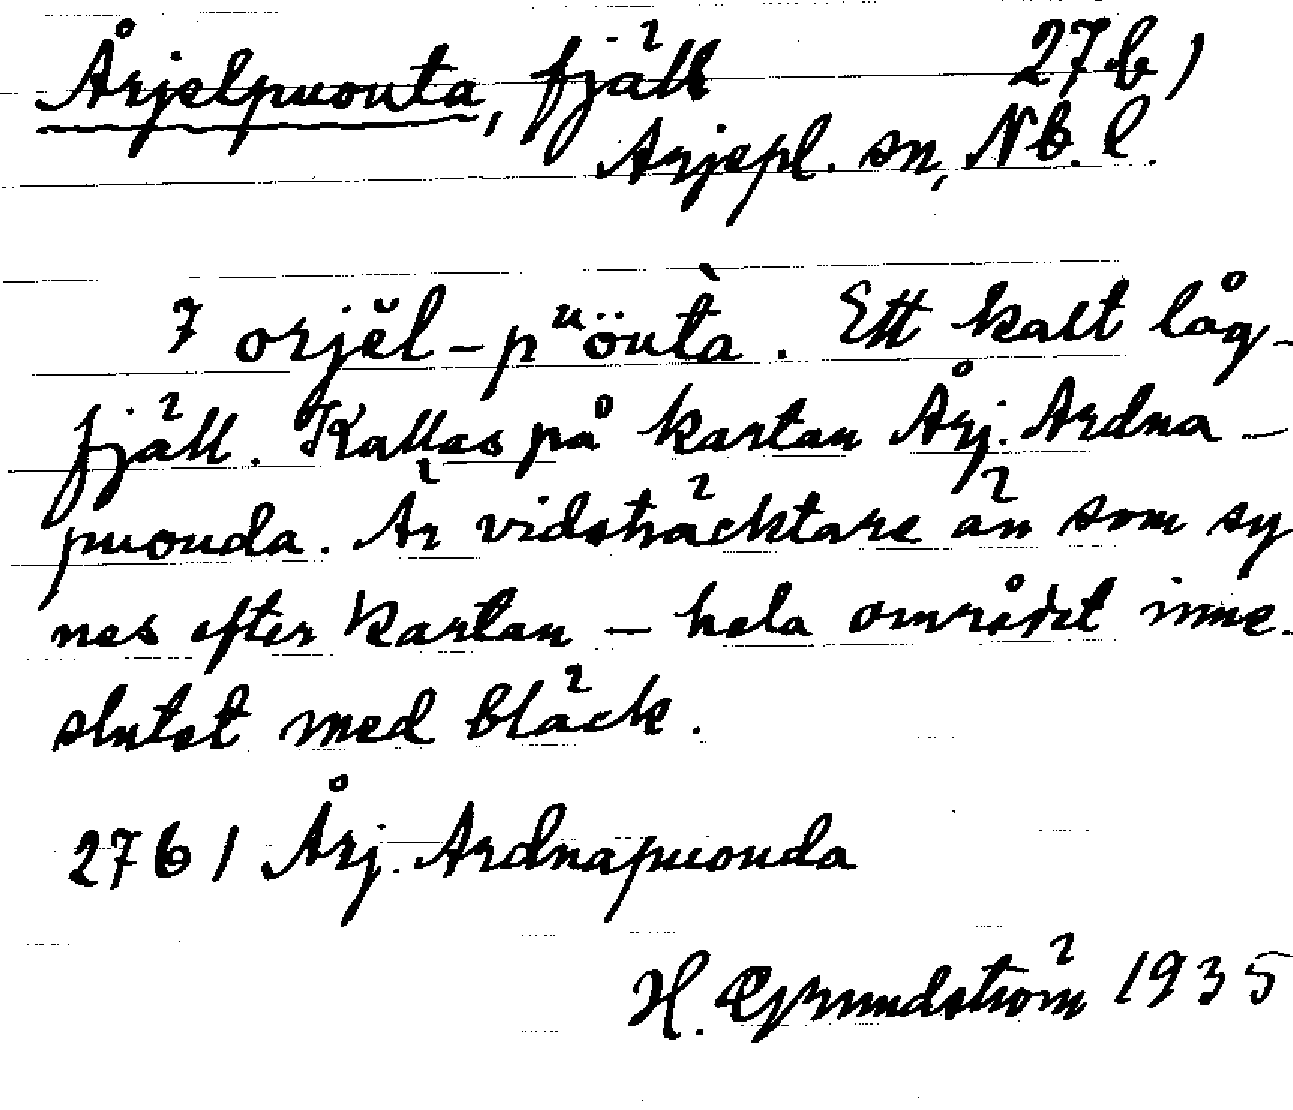 Årjelpuouta, fjäll 27b1
Arjepl. sn, Nb. l.
7 orjĕl-pᵘöutà. Ett kalt låg-
fjäll. Kallas på kartan Årj. Ardna-
puouda. Är vidsträcktare än som sy
nes efter kartan – hela området inne-
slutet med bläck.
27b1 Årj. Ardnapuouda
H. Grundström 1935